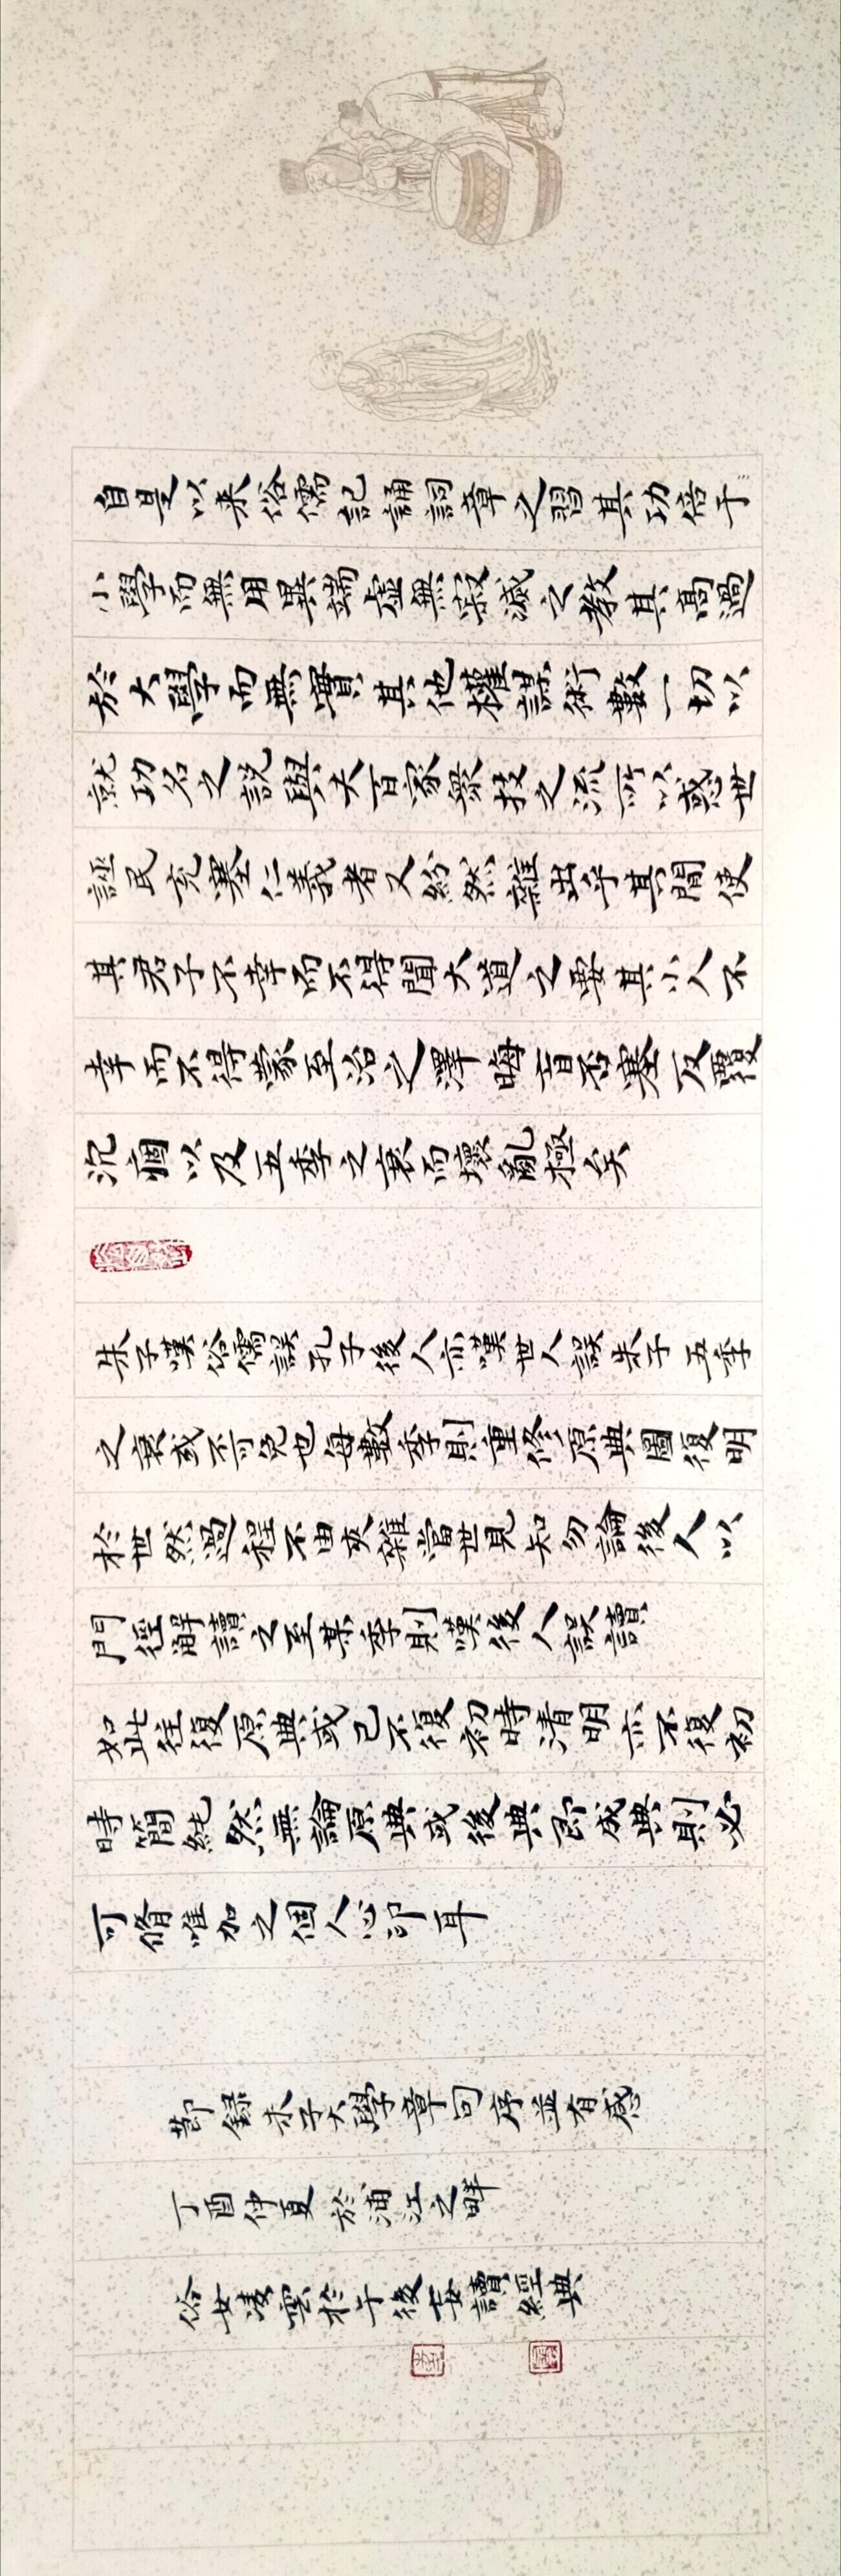 自是以来俗儒記誦詞章之習其功倍于
小學而無用異端虛無寂滅之教其高過
於大學而無實其他權謀術數一切以
就功名之說與夫百家眾技之流所以惑世
誣民充塞仁義者又紛然雜出乎其間使
其君子不幸而不得聞大道之要其小人不
幸而不得蒙至治之澤晦盲否塞反覆
沉痼以及五季之衰而壞亂極矣
朱子嘆俗儒誤孔子後人亦嘆世人誤朱子五季
之衰或不可免也每數季則重修原典圖復明
於世然過程不由夾雜當世見知勿論後人以
門徑解讀之至某季則嘆後人誤讀
如此往復原典或已不復初時清明亦不復初
時簡純然無論原典或後典即成典則必
可脩唯加之個人心印耳
節錄朱子大學章句序並有感
丁酉仲夏於浦江之畔
俗女凌雲於午後妄讀經典